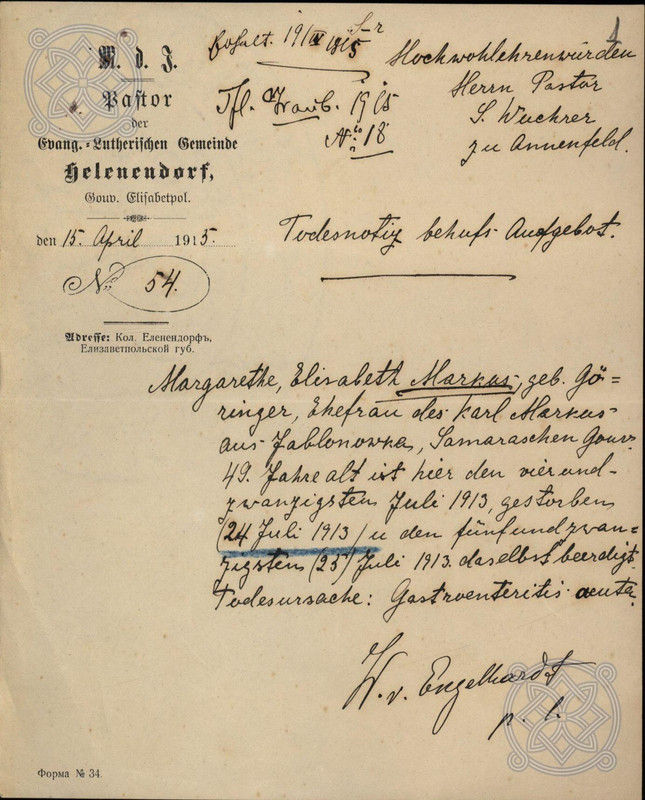 M. d. J.
Pastor
der
Evang.-Lutherischen Gemeinde
Helenendorf,
Gouv. Elisabetpol.
den 15. April 1915.
№ 54.
Adresse: Кол. Еленендорфъ,
Елизаветпольской губ.
erhalt. 19/IV 1915
Tfl. Traub. 1915
№ 18
1
Hochwohlehrenwürden
Herrn Pastor
S. Wuchrer
zu Annenfeld.
Todesnotiz behufs Aufgebot.
Margarethe, Elisabeth Markus, geb. Gö=
ringer, Ehefrau des Karl Markus
aus Jablonowka, Samaraschen Gouv.
49. Jahre alt ist hier den vierund-
zwanzigsten Juli 1913, gestorben
(24 Juli 1913) u den fünfundzwan-
zigsten (25) Juli 1913. daselbst beerdigt.
Todesursache: Gastroenteritis acuta.
W. v. Engelhardt
p. l.
Форма № 34.